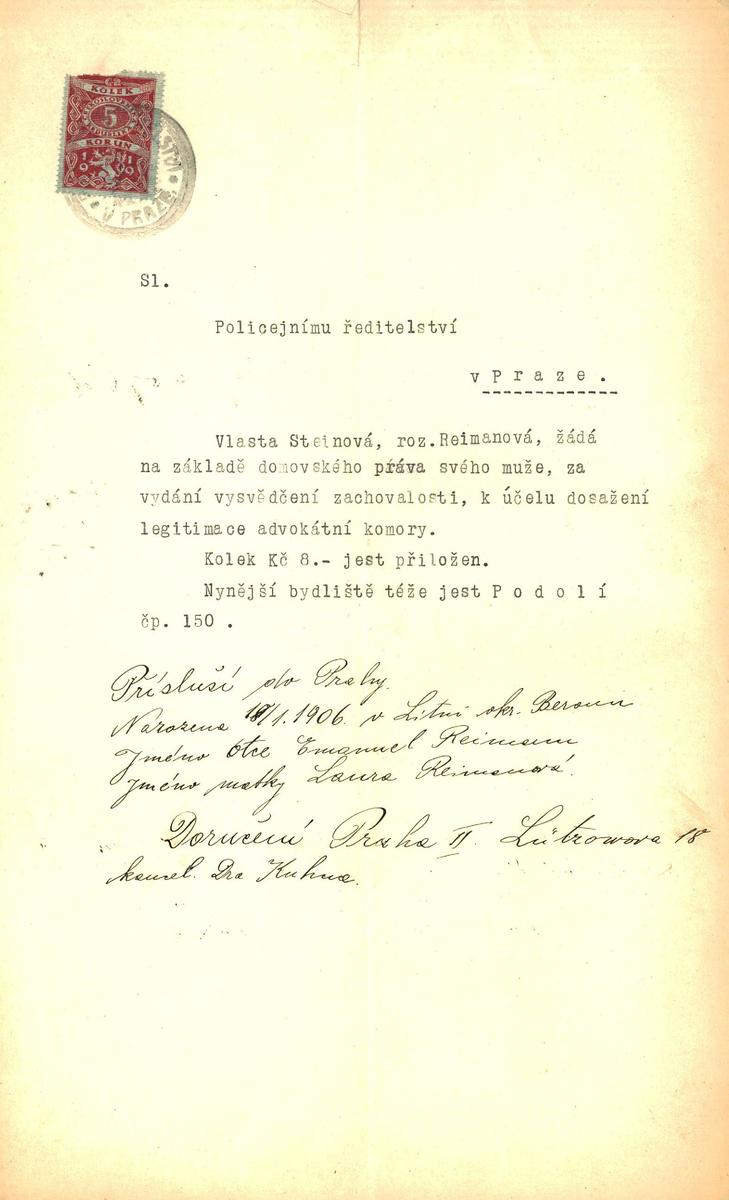 KOLEK
ČESKOSLOVENSKÁ
REPUBLIKA
5
KORUN
1919
V PRAZE
Sl.
Policejnímu ředitelství
v P r a z e .
Vlasta Steinová, roz.Reimanová, žádá
na základě domovského práva svého muže, za
vydání vysvědčení zachovalosti, k účelu dosažení
legitimace advokátní komory.
Kolek Kč 8.- jest přiložen.
Nynější bydliště téže jest P o d o l í
čp. 150 .
Přísluší do Prahy.
Narozena /1.1906. v Litni okr. Beroun
Jméno otce Emanuel Reimann
Jméno matky Laura Reimanová.
Doručení Praha II. Lützowova 18
kancel. Dra Kuhna.